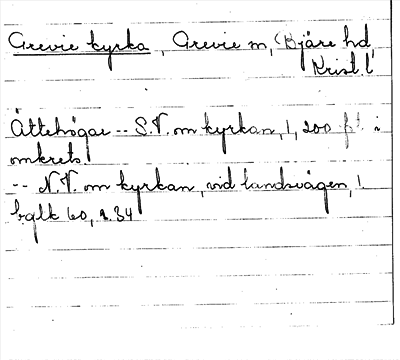 Grevie kyrka, Grevie sn, Bjäre hd,
Krist. l
Ättehögar -- S.V. om kyrkan, 1, 200 f. i
omkrets.
-- N.V. om kyrkan, vid landsvägen, 1.
60, s. 34